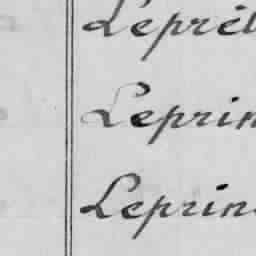 Leprêt
Leprin
Leprin